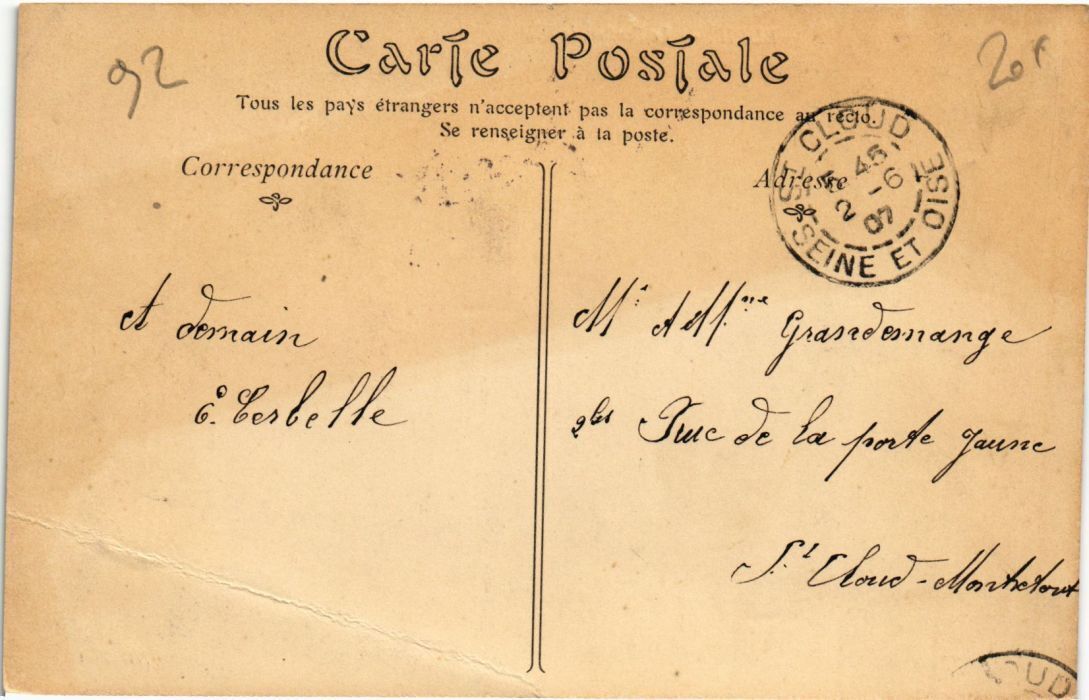 92
Carte Postale
Tous les pays étrangers n'acceptent pas la correspondance au recto.
Se renseigner à la poste.
Correspondance
Adresse
ST CLOUD
45
2 - 6
07
SEINE ET OISE
A demain
Mr et Mme Grandemange
2bis Rue de la porte Jaune
St Cloud - Montretout
CLOUD